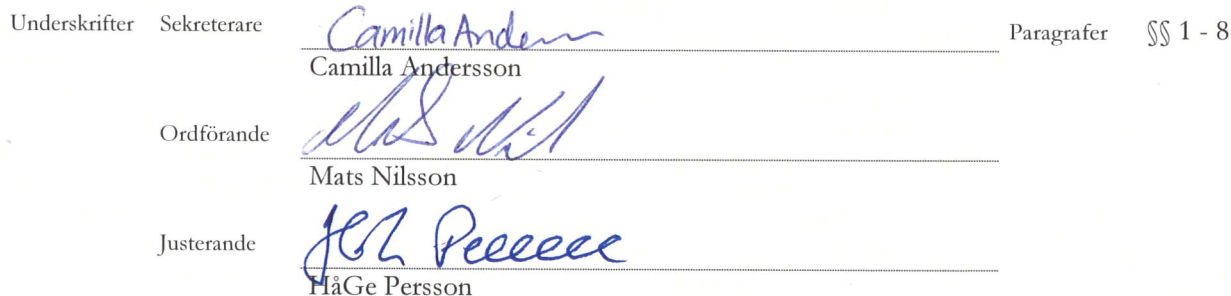 Underskrifter Sekreterare Camilla Andersson Paragrafer §§ 1 - 8
Camilla Andersson
Ordförande
Mats Nilsson
Justerande
HåGe Persson